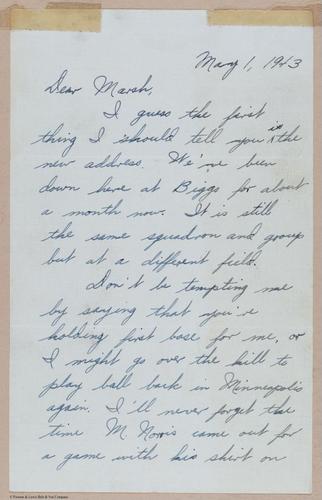 May 1, 1943
Dear Marsh,
I guess the first
thing I should tell you is the
new address. We've been
down here at Biggs for about
a month now. It is still
the same squadron and group
but at a different field.
Don't be tempting me
by saying that you're
holding first base for me, or
I might go over the hill to
play ball back in Minneapolis
again. I'll never forget the
time M. Norris came out for
a game with his shirt on